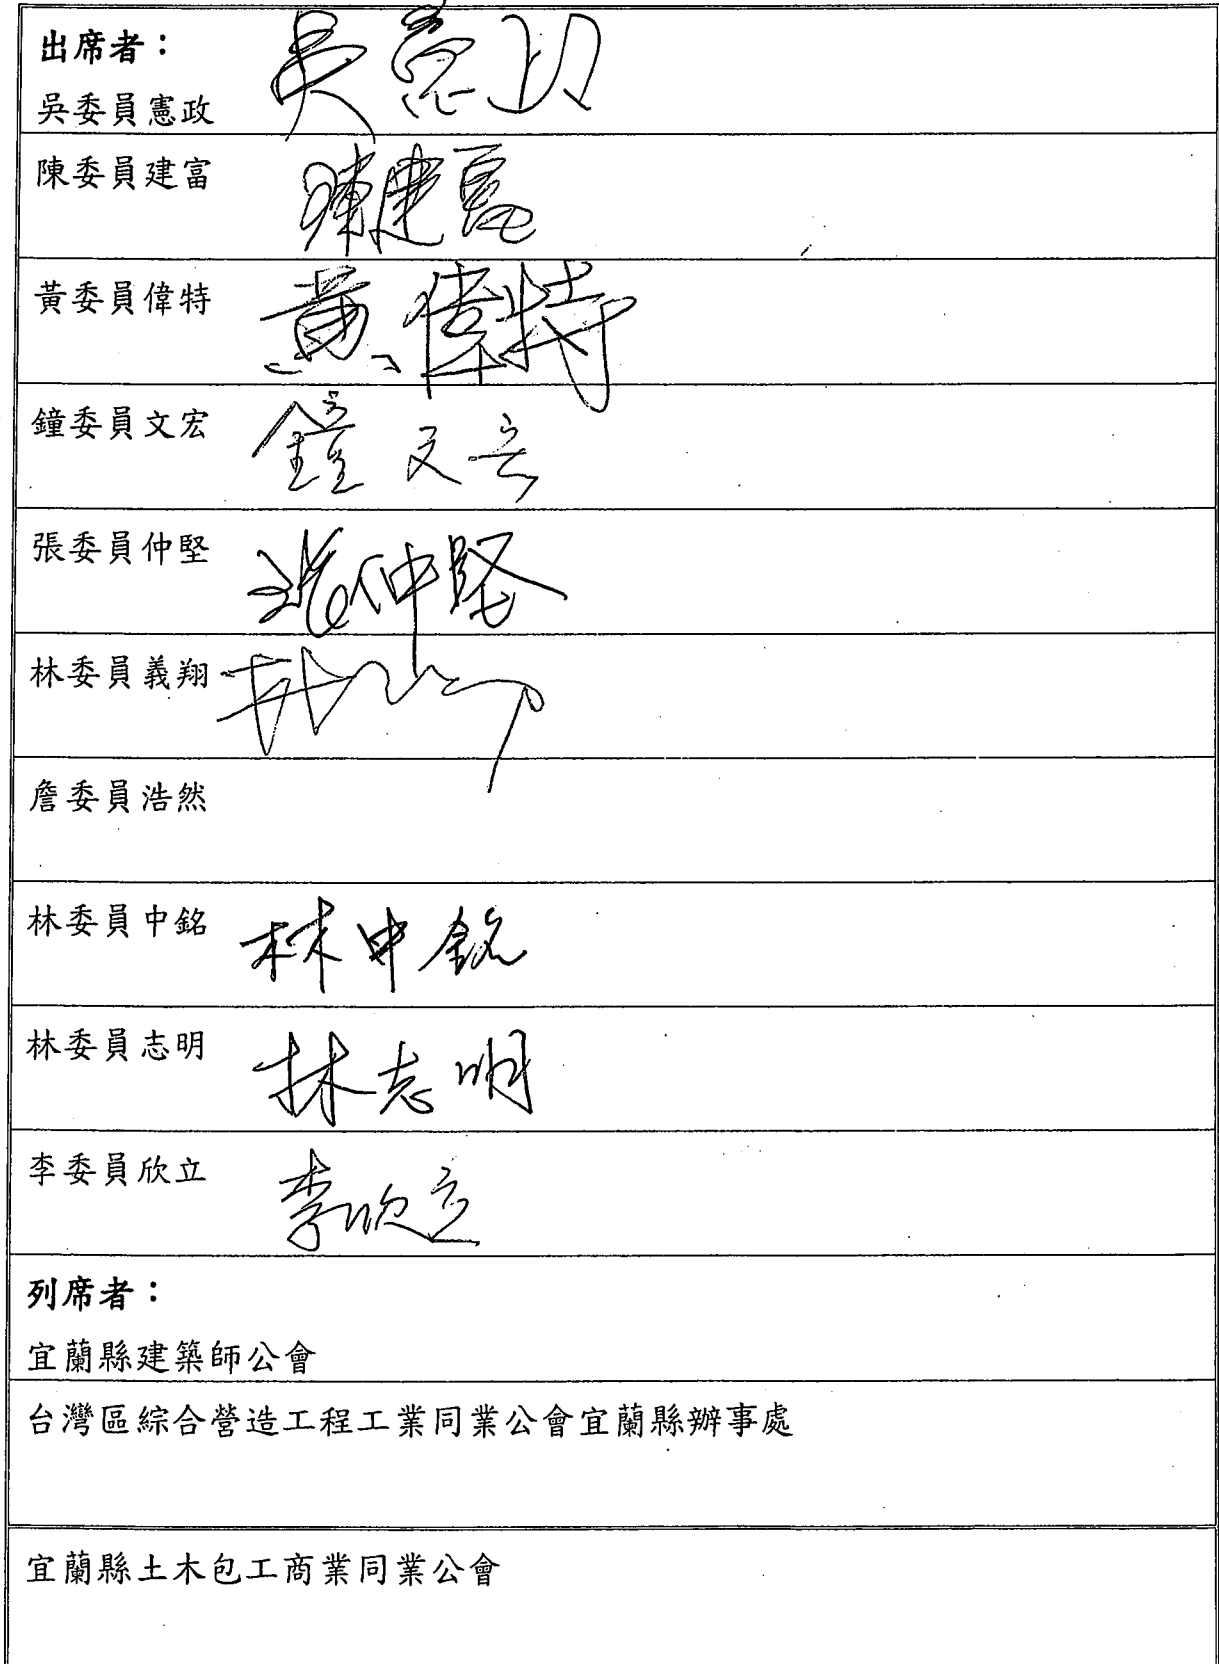 出席者：
吳委員憲政
吳憲政
陳委員建富
陳建富
黃委員偉特
黃偉特
鐘委員文宏
鐘文宏
張委員仲堅
張仲堅
林委員義翔
林
詹委員浩然
林委員中銘
林中銘
林委員志明
林志明
李委員欣立
李欣立
列席者：
宜蘭縣建築師公會
台灣區綜合營造工程工業同業公會宜蘭縣辦事處
宜蘭縣土木包工商業同業公會